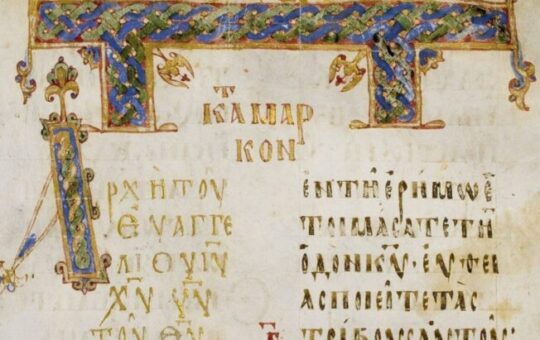 ΚΑΤ ΜΑΡ
ΚΟΝ
ΑΡΧΗ ΤΟΥ
ΕΥΑΓΓΕ
ΛΙΟΥ ΙΥ̅
ΧΥ̅ ΥΥ̅
ΤΟΥ ΘΥ̅
ΕΝ ΤΗ ΕΡΗΜΩ Ε
ΤΟΙΜΑϹΑΤΕ ΤΗ̅
ΟΔΟΝ ΚΥ̅· ΕΥΘΕΙ
ΑϹ ΠΟΙΕΙΤΕ ΤΑϹ
ΤΡΙΒΟΥϹ ΑΥΤΟΥ·